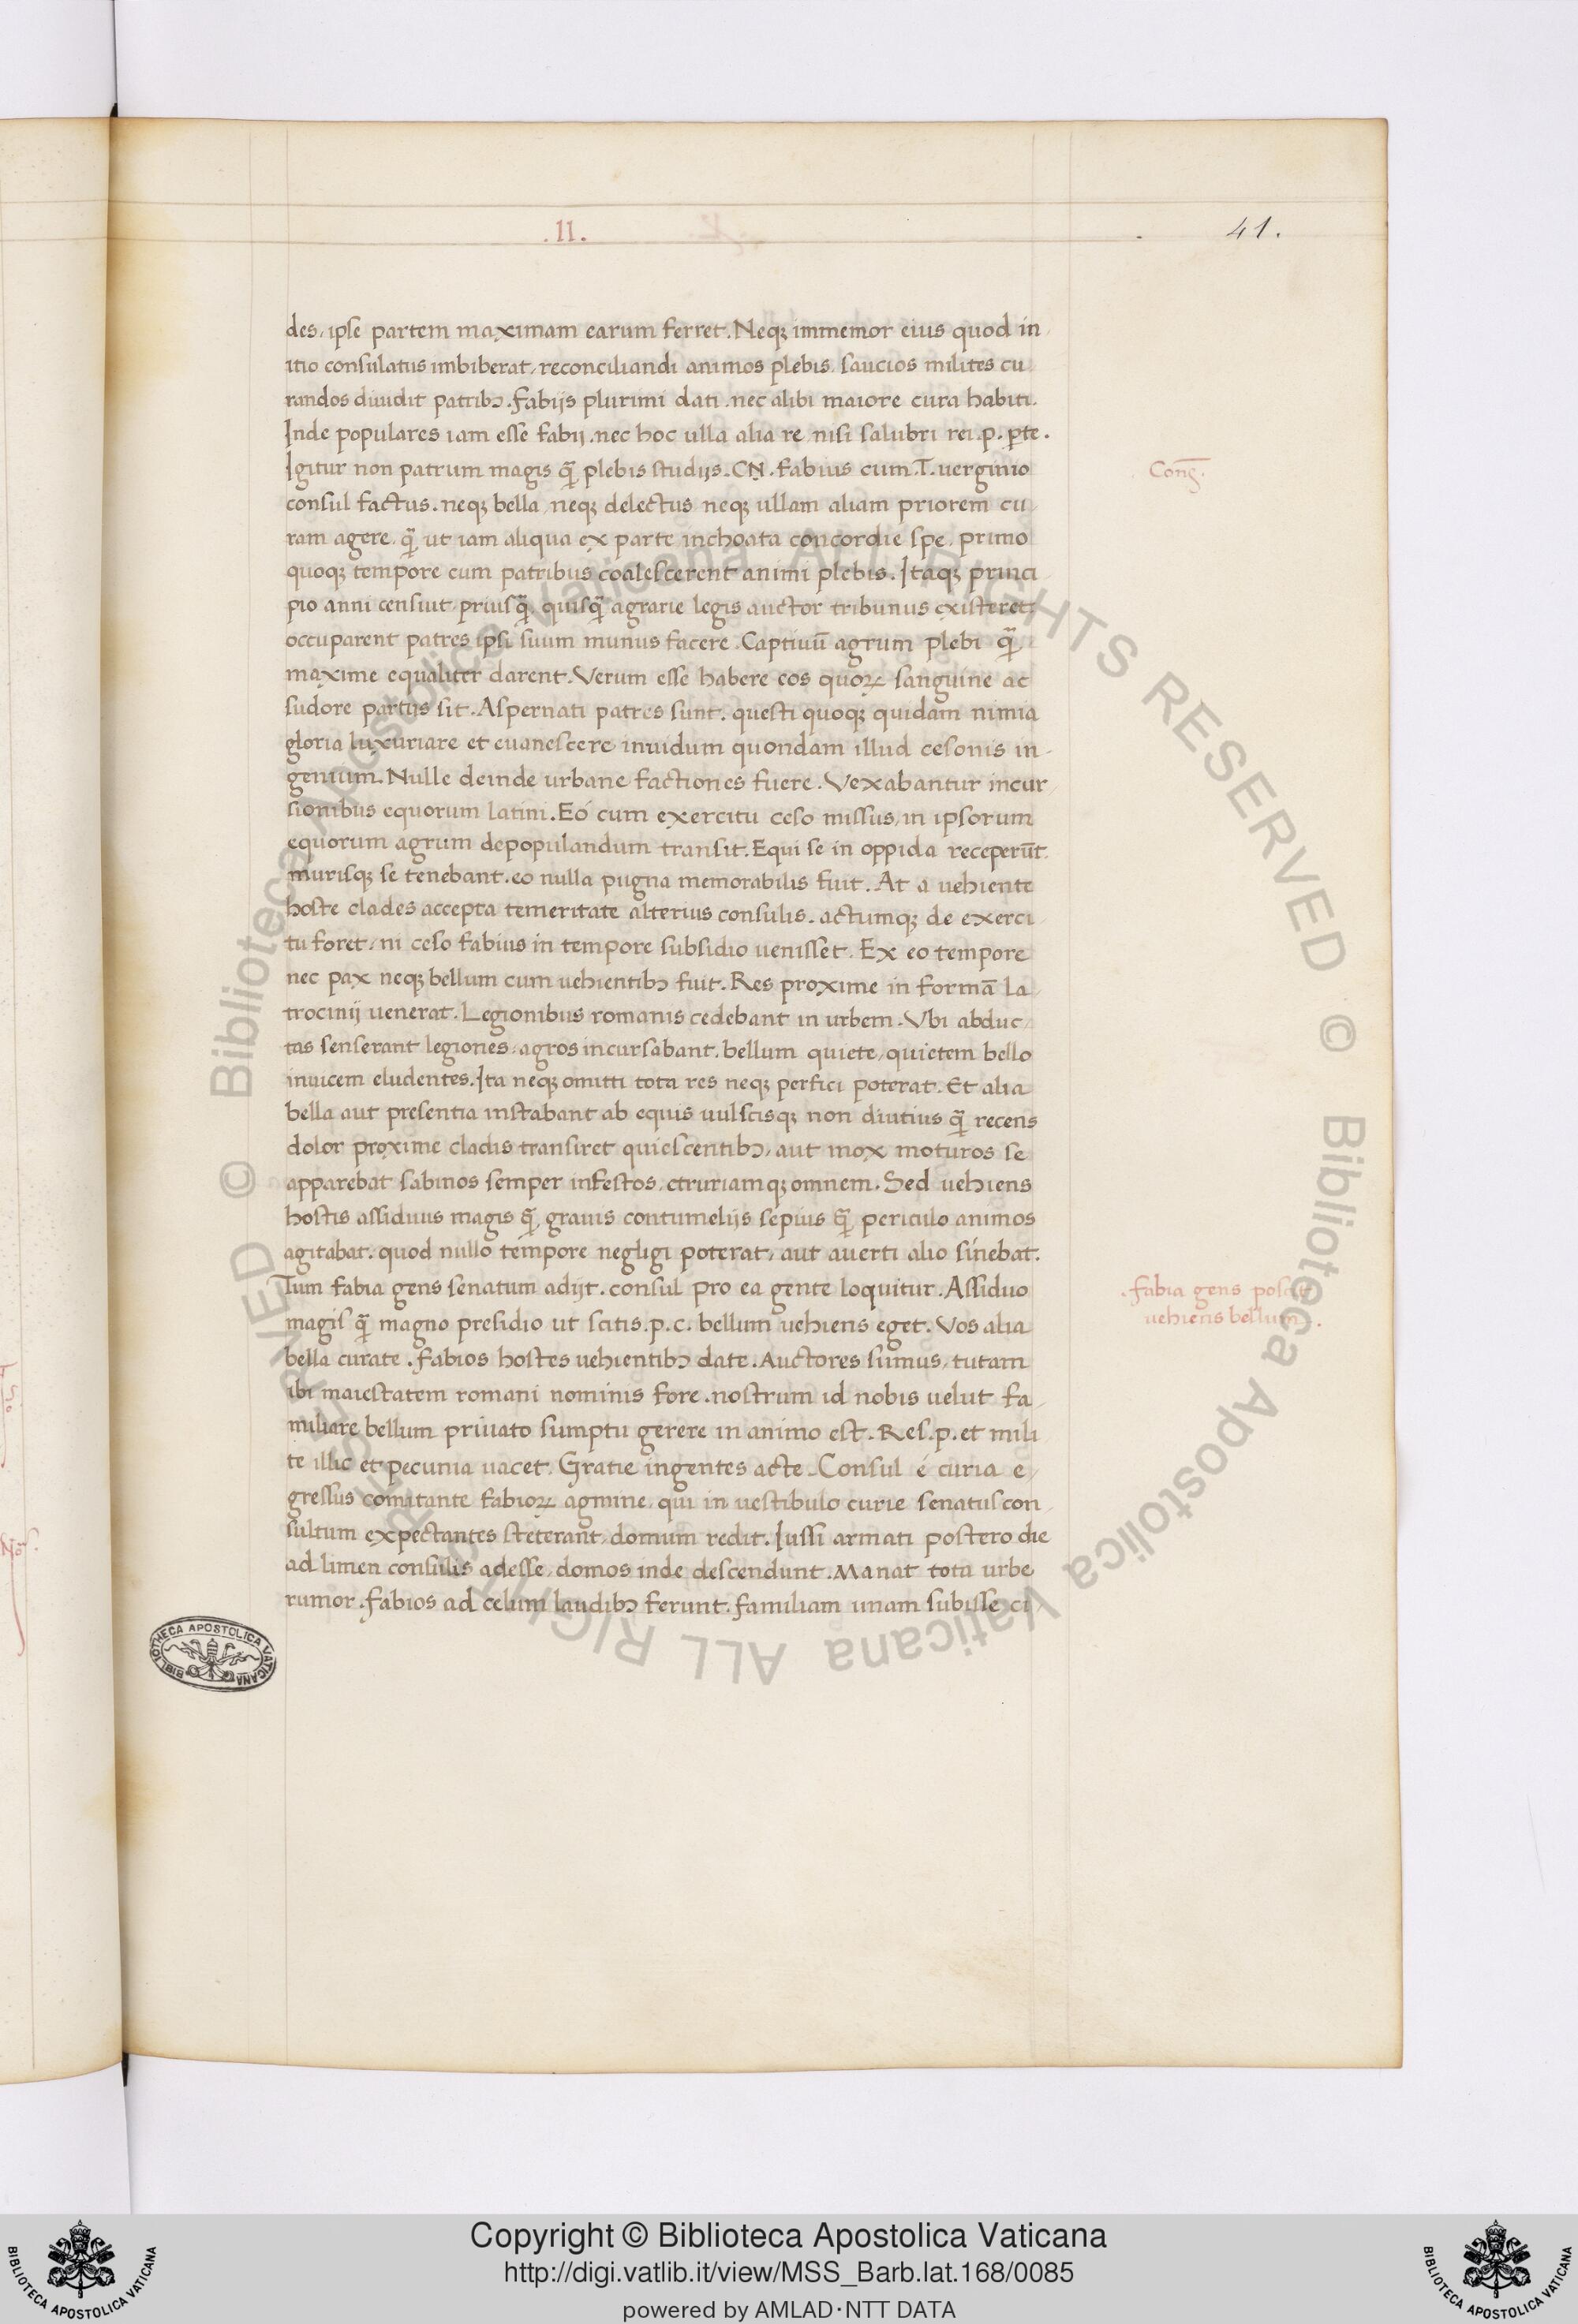 .II.
41.
des, ipse partem maximam earum ferret. Neqꝫ immemor eius quod in
itio consulatus imbiberat, reconciliandi animos plebis. saucios milites cu
randos diuidit patribꝫ. Fabijs plurimi dati. nec alibi maiore cura habiti.
Inde populares iam esse fabij. nec hoc ulla alia re nisi salubri rei.p. ꝑte.
Igitur non patrum magis q̃ plebis studijs. CN. Fabius cum .T. uerginio
consul factus. neqꝫ bella, neqꝫ delectus neqꝫ ullam aliam priorem cu
ram agere. q̃ ut iam aliqua ex parte inchoata concordie spe, primo
quoqꝫ tempore cum patribus coalescerent animi plebis. Itaqꝫ princi
pio anni censuit, priusq̃ quisq̃ agrarie legis auctor tribunus existeret,
occuparent patres ipsi suum munus facere. Captiuū agrum plebi q̃
maxime equaliter darent. Verum esse habere eos quoꝝ sanguine ac
sudore partijs sit. Aspernati patres sunt. questi quoqꝫ quidam nimia
gloria luxuriare et euanescere inuidum quondam illud cesonis in-
genium. Nulle deinde urbane factiones fuere. Vexabantur incur
sionibus equorum latini. Eó cum exercitu ceso missus, in ipsorum
equorum agrum depopulandum transit. Equi se in oppida receperūt.
murisqꝫ se tenebant. eo nulla pugna memorabilis fuit. At a uehiente
hoste clades accepta temeritate alterius consulis. actumqꝫ de exerci
tu foret, ni ceso fabius in tempore subsidio uenisset. Ex eo tempore
nec pax neqꝫ bellum cum uehientibꝫ fuit. Res proxime in formā la
trocinij uenerat. Legionibus romanis cedebant in urbem. Vbi abduc
tas senserant legiones, agros incursabant. bellum quiete, quietem bello
inuicem eludentes. Ita neqꝫ omitti tota res neqꝫ perfici poterat. Et alia
bella aut presentia instabant ab equis uulscisqꝫ non diutius q̃ recens
dolor proxime cladis transiret quiescentibꝫ, aut mox moturos se
apparebat sabinos semper infestos, etruriamqꝫ omnem. Sed uehiens
hostis assiduus magis q̃ grauis contumelijs sepius q̃ periculo animos
agitabat. quod nullo tempore negligi poterat, aut auerti alio sinebat.
Tum fabia gens senatum adijt. consul pro ea gente loquitur. Assiduo
magis q̃ magno presidio ut scitis .p.c. bellum uehiens eget. Vos alia
bella curate. Fabios hostes uehientibꝫ date. Auctores sumus, tutam
ibi maiestatem romani nominis fore. nostrum id nobis uelut fa
miliare bellum priuato sumptu gerere in animo est. Res.p. et mili
te illic et pecunia uacet. Gratie ingentes acte. Consul é curia e
gressus comitante fabioꝝ agmine, qui in uestibulo curie senatuscon
sultum expectantes steterant, domum redit. Iussi armati postero die
ad limen consulis adesse, domos inde descendunt. Manat tota urbe
rumor. Fabios ad celum laudibꝫ ferunt. familiam unam subisse ci
.fabia gens poscit
uehiens bellum.
BIBLIOTHECA APOSTOLICA VATICANA
© Biblioteca Apostolica Vaticana ALL RIGHTS RESERVED
© Biblioteca Apostolica Vaticana ALL RIGHTS RESERVED
Copyright © Biblioteca Apostolica Vaticana
http://digi.vatlib.it/view/MSS_Barb.lat.168/0085
powered by AMLAD·NTT DATA
BIBLIOTECA APOSTOLICA VATICANA
BIBLIOTECA APOSTOLICA VATICANA